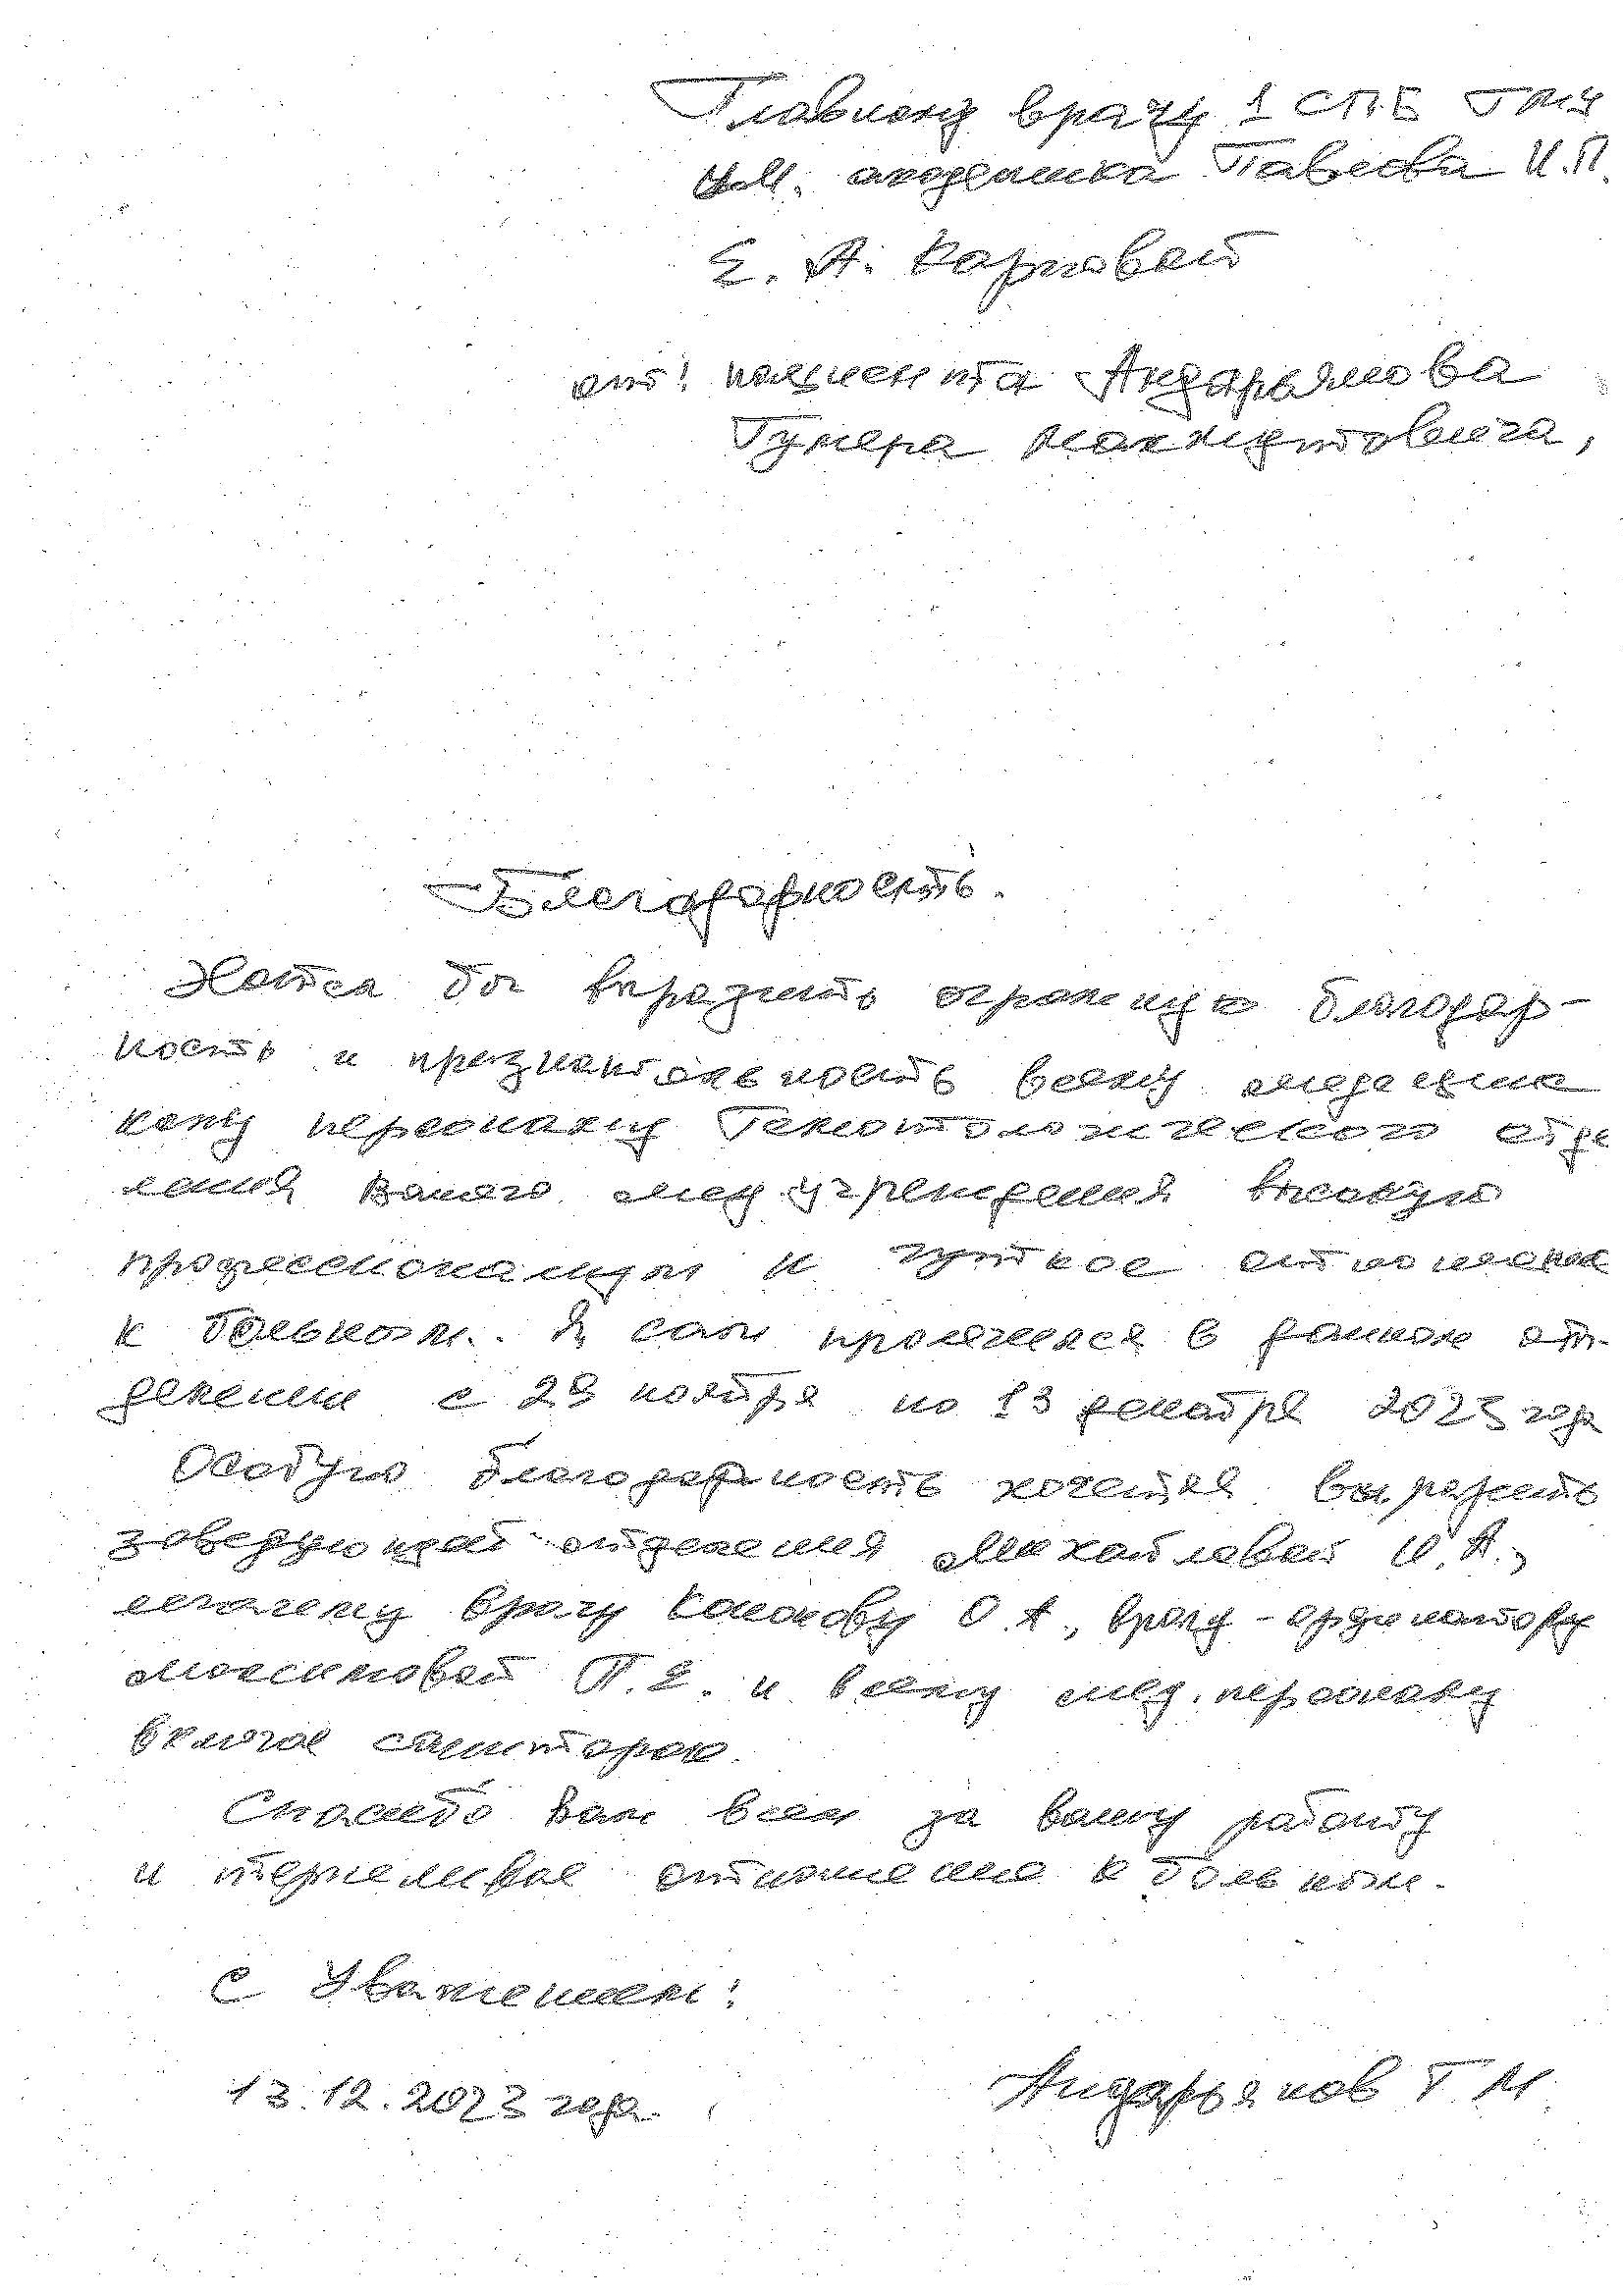 Главному врачу 1 СПБ ГМУ
им. академика Павлова И.П.
Е. А. Карповой
от: пациента Андарьянова
Гумера Махмутовича,
Благодарность.
Хотса бы выразить огромную благодар-
ность и признательность всему медецинс
кому персоналу Гемотологического отде
ления Вашего мед. учреждения высокую
професионализм и чуткое отношение
к больном. Я сам пролечился в данном от-
делении с 29 ноября по 13 декабря 2023 года
Особую благодарность хочется выразить
заведующей отделения Михайловой И. А.,
лечачему врачу О. А., врачу-ординатору
Максимовой П. Е. и всему мед. персоналу
включае санитарок.
Спасибо Вам всем за вашу работу
и терпеливое отношение к больным.
С Уважением:
13.12.2023 года.
Андарьянов Г М.